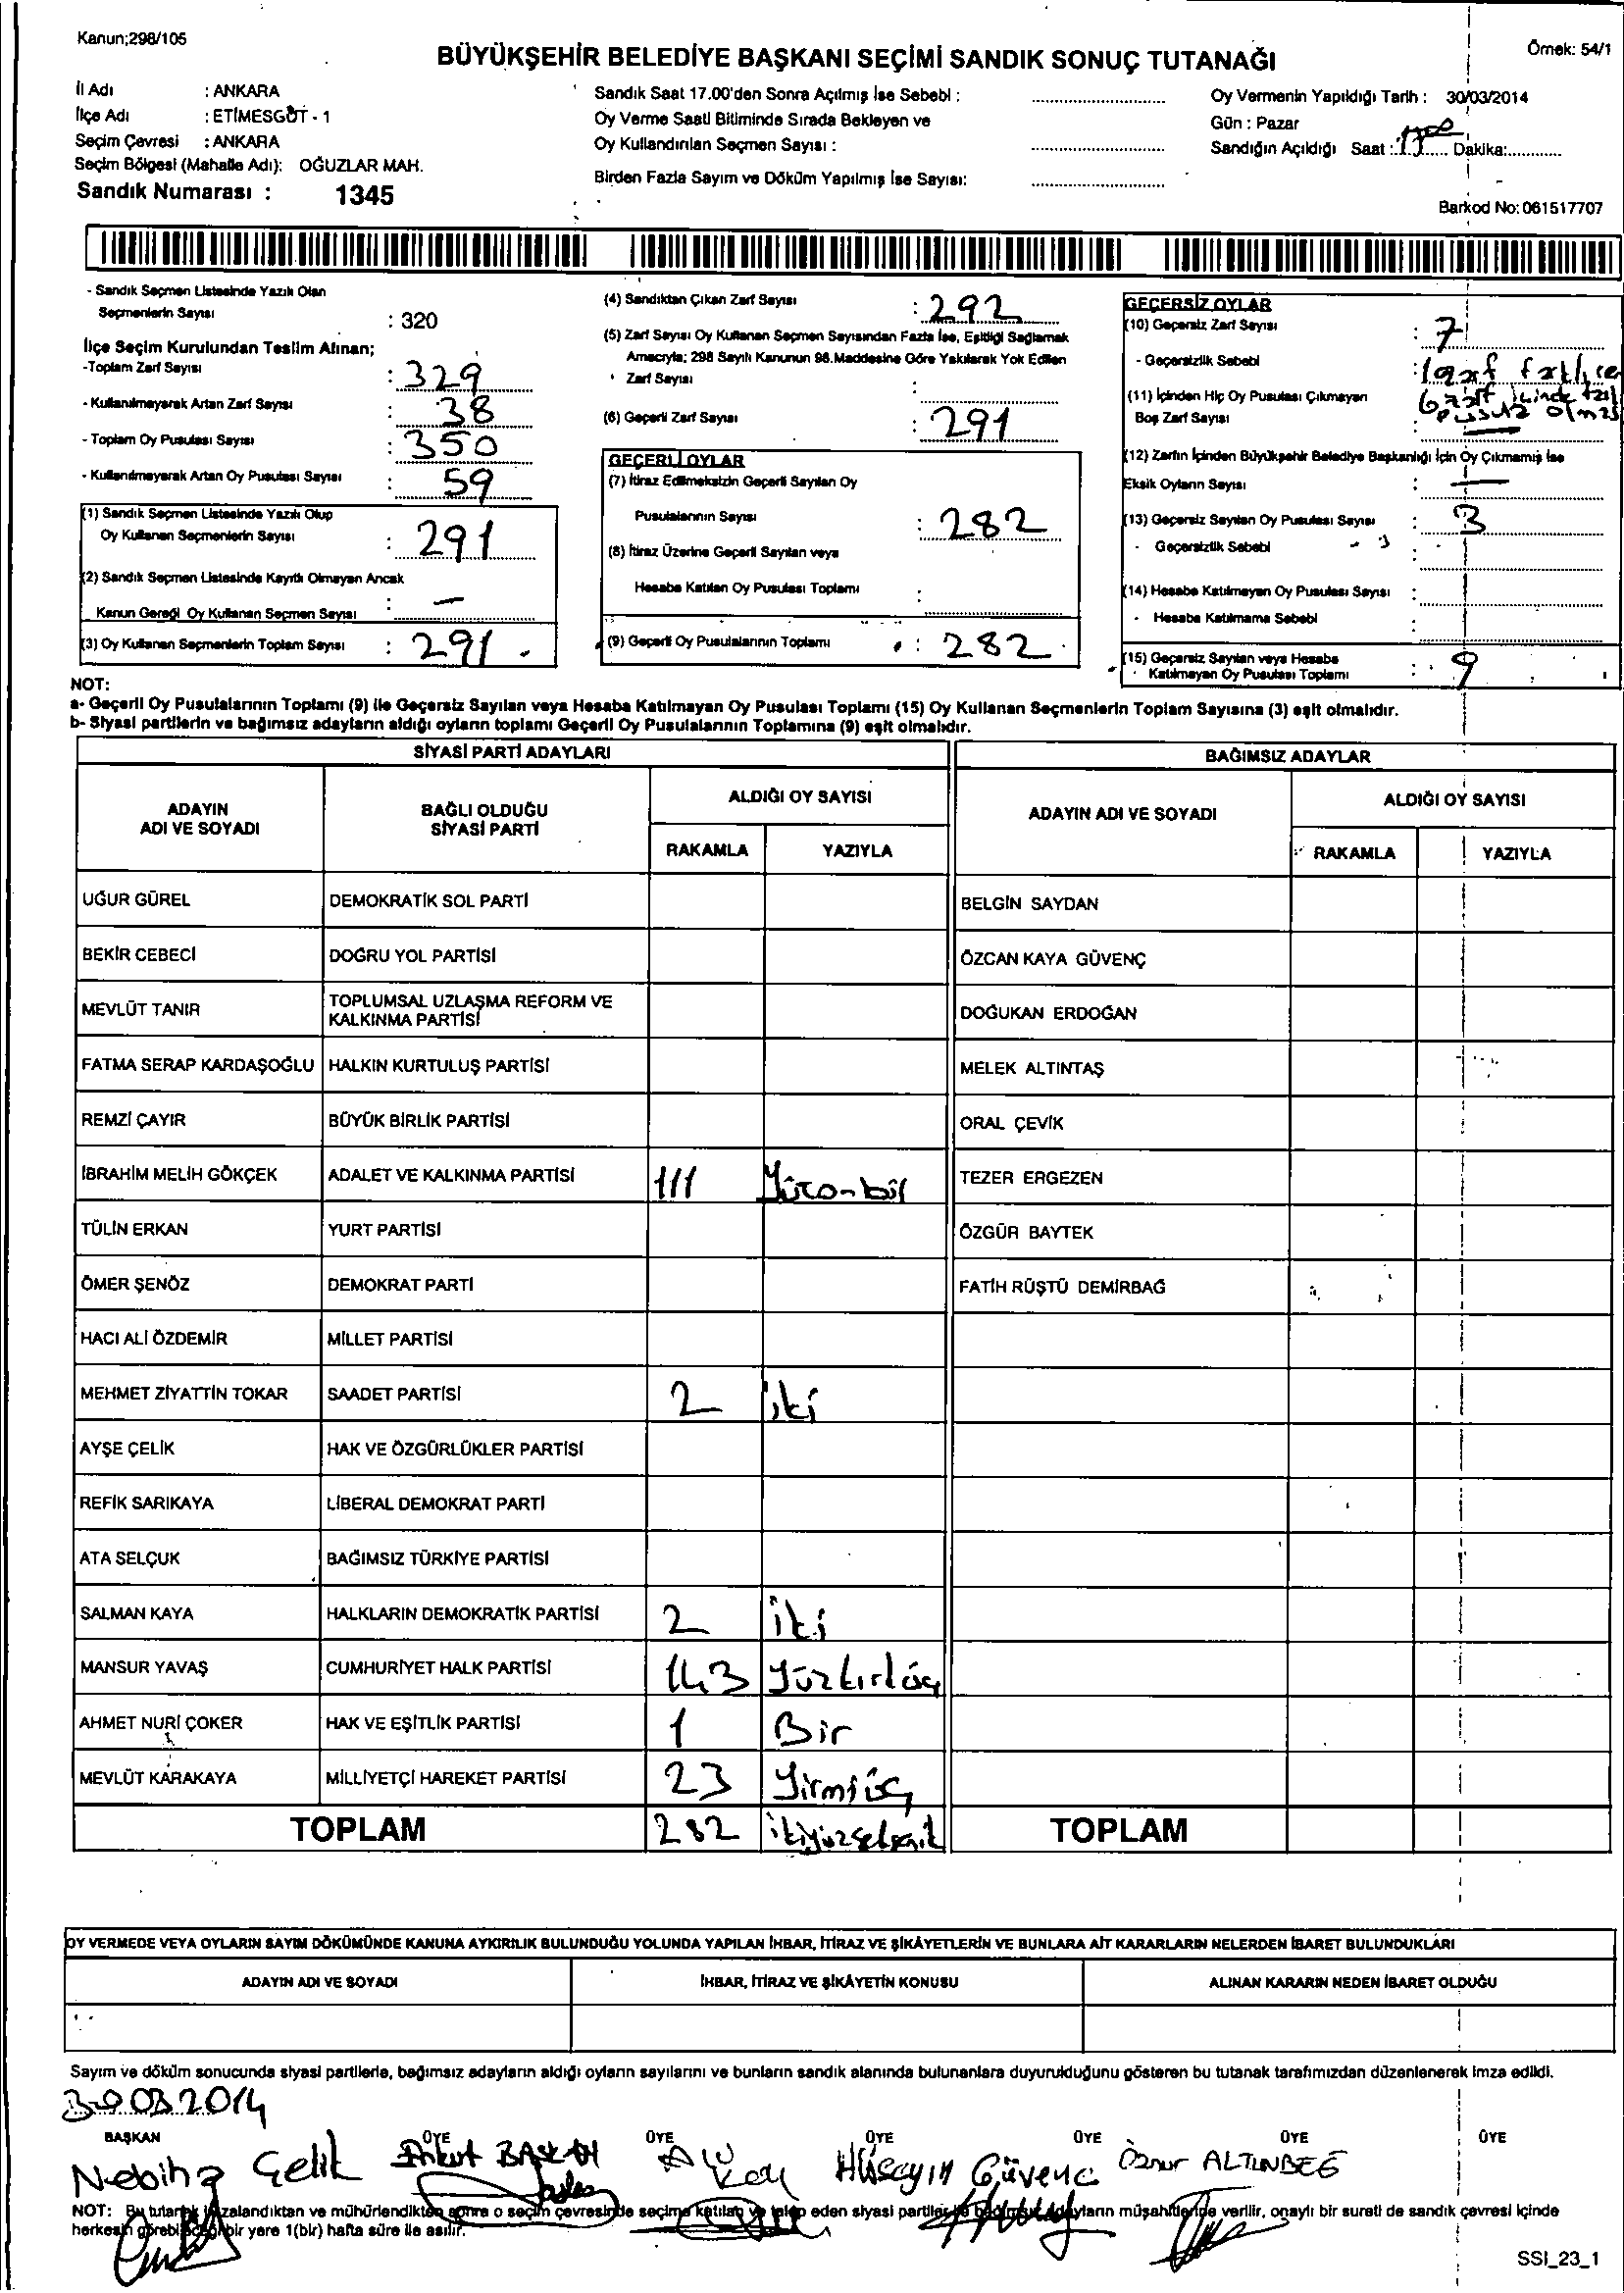 Kanun;298/105
Örnek: 54/1
BÜYÜKŞEHİR BELEDİYE BAŞKANI SEÇİMİ SANDIK SONUÇ TUTANAĞI
İl Adı : ANKARA
İlçe Adı : ETİMESGUT - 1
Seçim Çevresi : ANKARA
Seçim Bölgesi (Mahalle Adı): OĞUZLAR MAH.
Sandık Numarası : 1345
Sandık Saat 17.00'den Sonra Açılmış İse Sebebi :
Oy Verme Saati Bitiminde Sırada Bekleyen ve
Oy Kullandırılan Seçmen Sayısı :
Birden Fazla Sayım ve Döküm Yapılmış İse Sayısı:
Oy Vermenin Yapıldığı Tarih : 30/03/2014
Gün : Pazar
Sandığın Açıldığı Saat : Dakika:
Barkod No: 061517707
- Sandık Seçmen Listesinde Yazılı Olan
Seçmenlerin Sayısı : 320
İlçe Seçim Kurulundan Teslim Alınan;
-Toplam Zarf Sayısı : 329
- Kullanılmayarak Artan Zarf Sayısı : 38
- Toplam Oy Pusulası Sayısı : 350
- Kullanılmayarak Artan Oy Pusulası Sayısı : 59
(1) Sandık Seçmen Listesinde Yazılı Olup
Oy Kullanan Seçmenlerin Sayısı : 291
(2) Sandık Seçmen Listesinde Kayıtlı Olmayan Ancak
Kanun Gereği Oy Kullanan Seçmen Sayısı : -
(3) Oy Kullanan Seçmenlerin Toplam Sayısı : 291
(4) Sandıktan Çıkan Zarf Sayısı : 292
(5) Zarf Sayısı Oy Kullanan Seçmen Sayısından Fazla İse, Eşitliği Sağlamak
Amacıyla; 298 Sayılı Kanunun 98.Maddesine Göre Yakılarak Yok Edilen
Zarf Sayısı :
(6) Geçerli Zarf Sayısı : 291
GEÇERLİ OYLAR
(7) İtiraz Edilmeksizin Geçerli Sayılan Oy
Pusulalarının Sayısı : 282
(8) İtiraz Üzerine Geçerli Sayılan veya
Hesaba Katılan Oy Pusulası Toplamı :
(9) Geçerli Oy Pusulalarının Toplamı : 282
GEÇERSİZ OYLAR
(10) Geçersiz Zarf Sayısı : 7
- Geçersizlik Sebebi :
(11) İçinden Hiç Oy Pusulası Çıkmayan
Boş Zarf Sayısı : -
(12) Zarfın İçinden Büyükşehir Belediye Başkanlığı İçin Oy Çıkmamış İse
Eksik Oyların Sayısı : -
(13) Geçersiz Sayılan Oy Pusulası Sayısı : 3
- Geçersizlik Sebebi :
(14) Hesaba Katılmayan Oy Pusulası Sayısı :
- Hesaba Katılmama Sebebi :
(15) Geçersiz Sayılan veya Hesaba
Katılmayan Oy Pusulası Toplamı : 9
NOT:
a- Geçerli Oy Pusulalarının Toplamı (9) ile Geçersiz Sayılan veya Hesaba Katılmayan Oy Pusulası Toplamı (15) Oy Kullanan Seçmenlerin Toplam Sayısına (3) eşit olmalıdır.
b- Siyasi partilerin ve bağımsız adayların aldığı oyların toplamı Geçerli Oy Pusulalarının Toplamına (9) eşit olmalıdır.
SİYASİ PARTİ ADAYLARI
BAĞIMSIZ ADAYLAR
ADAYIN ADI VE SOYADI
BAĞLI OLDUĞU SİYASİ PARTİ
ALDIĞI OY SAYISI
RAKAMLA YAZIYLA
ADAYIN ADI VE SOYADI
ALDIĞI OY SAYISI
RAKAMLA YAZIYLA
UĞUR GÜREL DEMOKRATİK SOL PARTİ BELGİN SAYDAN
BEKİR CEBECİ DOĞRU YOL PARTİSİ ÖZCAN KAYA GÜVENÇ
MEVLÜT TANIR TOPLUMSAL UZLAŞMA REFORM VE KALKINMA PARTİSİ DOĞUKAN ERDOĞAN
FATMA SERAP KARDAŞOĞLU HALKIN KURTULUŞ PARTİSİ MELEK ALTINTAŞ
REMZİ ÇAYIR BÜYÜK BİRLİK PARTİSİ ORAL ÇEVİK
İBRAHİM MELİH GÖKÇEK ADALET VE KALKINMA PARTİSİ 111 Yüzonbir TEZER ERGEZEN
TÜLİN ERKAN YURT PARTİSİ ÖZGÜR BAYTEK
ÖMER ŞENÖZ DEMOKRAT PARTİ FATİH RÜŞTÜ DEMİRBAĞ
HACI ALİ ÖZDEMİR MİLLET PARTİSİ
MEHMET ZİYATTİN TOKAR SAADET PARTİSİ 2 iki
AYŞE ÇELİK HAK VE ÖZGÜRLÜKLER PARTİSİ
REFİK SARIKAYA LİBERAL DEMOKRAT PARTİ
ATA SELÇUK BAĞIMSIZ TÜRKİYE PARTİSİ
SALMAN KAYA HALKLARIN DEMOKRATİK PARTİSİ 2 iki
MANSUR YAVAŞ CUMHURİYET HALK PARTİSİ 143 Yüzkırküç
AHMET NURİ ÇOKER HAK VE EŞİTLİK PARTİSİ 1 Bir
MEVLÜT KARAKAYA MİLLİYETÇİ HAREKET PARTİSİ 23 Yirmiüç
TOPLAM 282 ikiyüzseksenik TOPLAM
OY VERMEDE VEYA OYLARIN SAYIM DÖKÜMÜNDE KANUNA AYKIRILIK BULUNDUĞU YOLUNDA YAPILAN İHBAR, İTİRAZ VE ŞİKÂYETLERİN VE BUNLARA AİT KARARLARIN NELERDEN İBARET BULUNDUKLARI
ADAYIN ADI VE SOYADI İHBAR, İTİRAZ VE ŞİKÂYETİN KONUSU ALINAN KARARIN NEDEN İBARET OLDUĞU
Sayım ve döküm sonucunda siyasi partilerle, bağımsız adayların aldığı oyların sayılarını ve bunların sandık alanında bulunanlara duyurulduğunu gösteren bu tutanak tarafımızdan düzenlenerek imza edildi.
30.03.2014
BAŞKAN ÜYE ÜYE ÜYE ÜYE ÜYE ÜYE
Nebiha Çelik Hüseyin Güvenç Öznur ALTUNBEG
NOT: Bu tutanak imzalandıktan ve mühürlendikten sonra o seçim çevresinde seçime katılan ve talep eden siyasi partiler ile bağımsız adayların müşahitlerine verilir, onaylı bir sureti de sandık çevresi içinde
herkesin görebileceği bir yere 1(bir) hafta süre ile asılır.
SSI_23_1